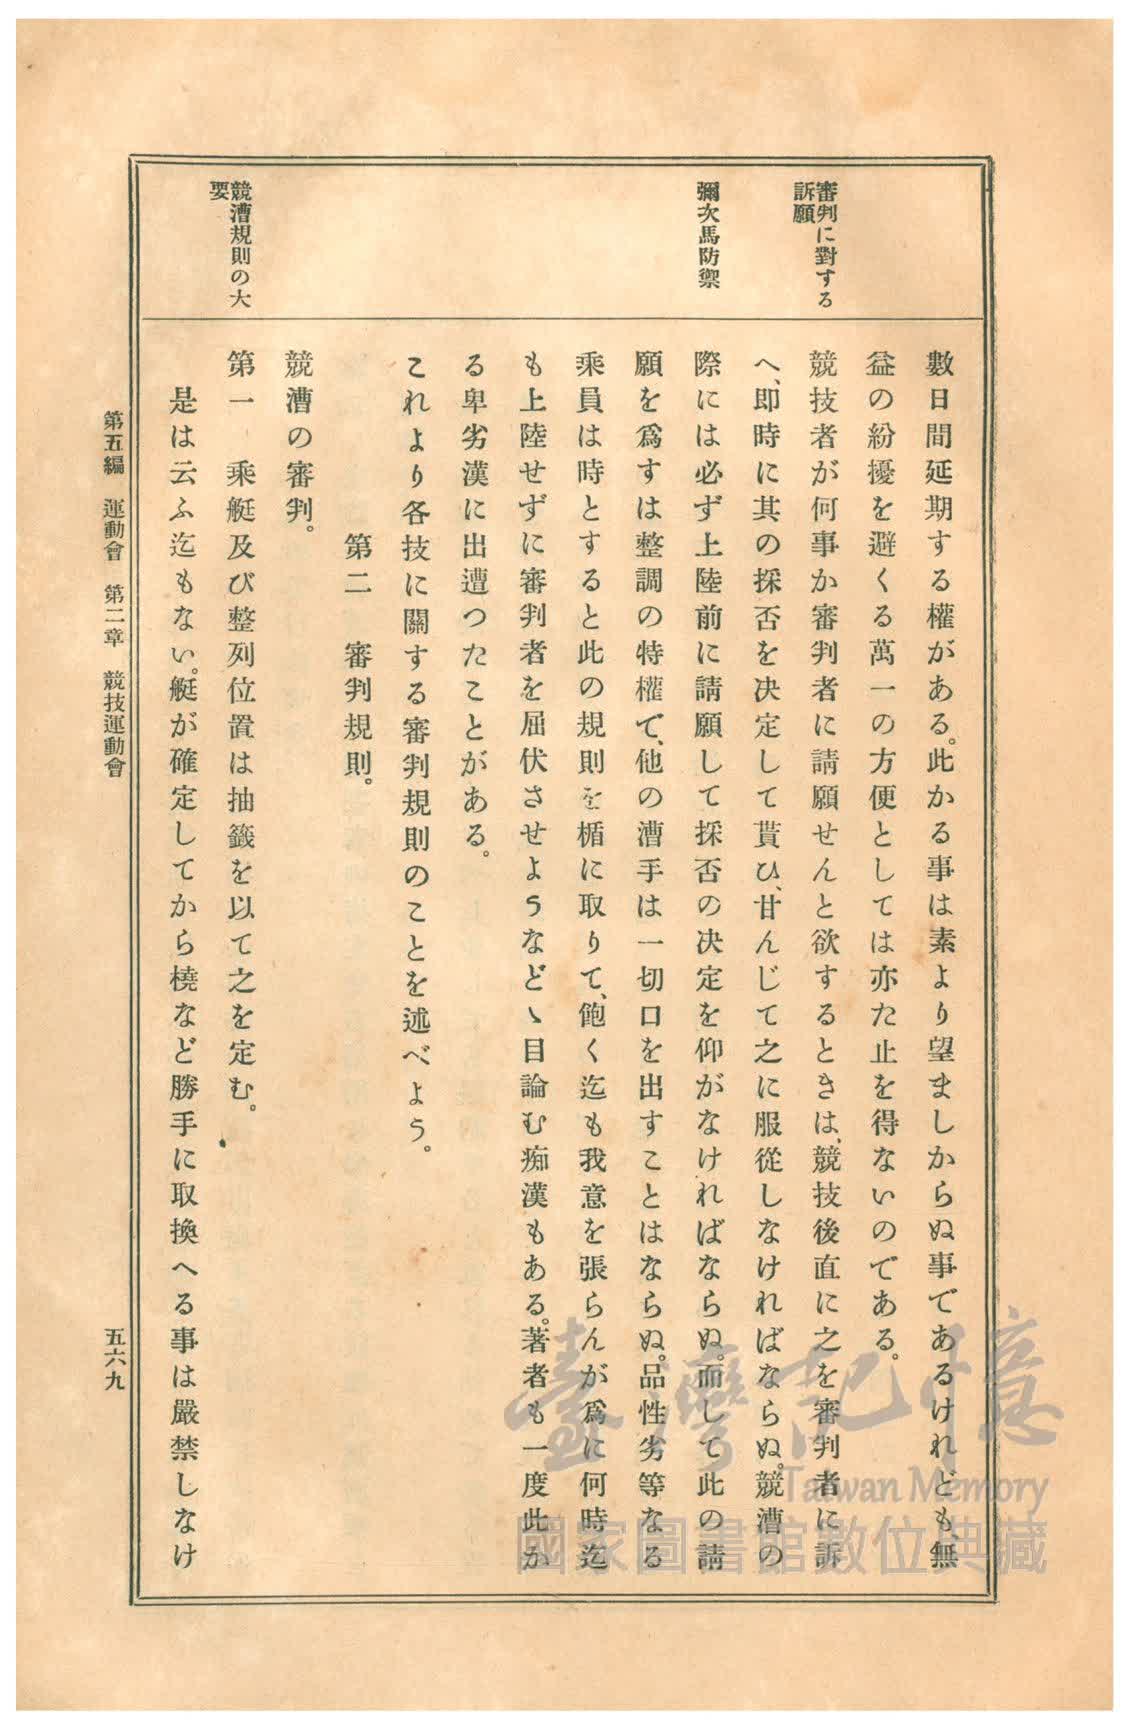 審判に對する
訴願
彌次馬防禦
競漕規則の大
要
數日間延期する權がある。此かる事は素より望ましからぬ事であるけれども、無
益の紛擾を避くる萬一の方便としては亦た止を得ないのである。
競技者が何事か審判者に請願せんと欲するときは、競技後直に之を審判者に訴
へ、即時に其の採否を決定して貰ひ、甘んじて之に服從しなければならぬ。競漕の
際には必ず上陸前に請願して採否の決定を仰がなければならぬ。而して此の請
願を爲すは整調の特權で、他の漕手は一切口を出すことはならぬ。品性劣等なる
乘員は時とすると此の規則を楯に取りて、飽く迄も我意を張らんが爲に何時迄
も上陸せずに審判者を屈伏させようなどゝ目論む痴漢もある。著者も一度此か
る卑劣漢に出遭つたことがある。
これより各技に關する審判規則のことを述べよう。
第二 審判規則。
競漕の審判。
第一 乘艇及び整列位置は抽籤を以て之を定む。
是は云ふ迄もない。艇が確定してから橈など勝手に取換へる事は嚴禁しなけ
第五編 運動會 第二章 競技運動會
五六九
臺灣記憶
Taiwan Memory
國家圖書館數位典藏